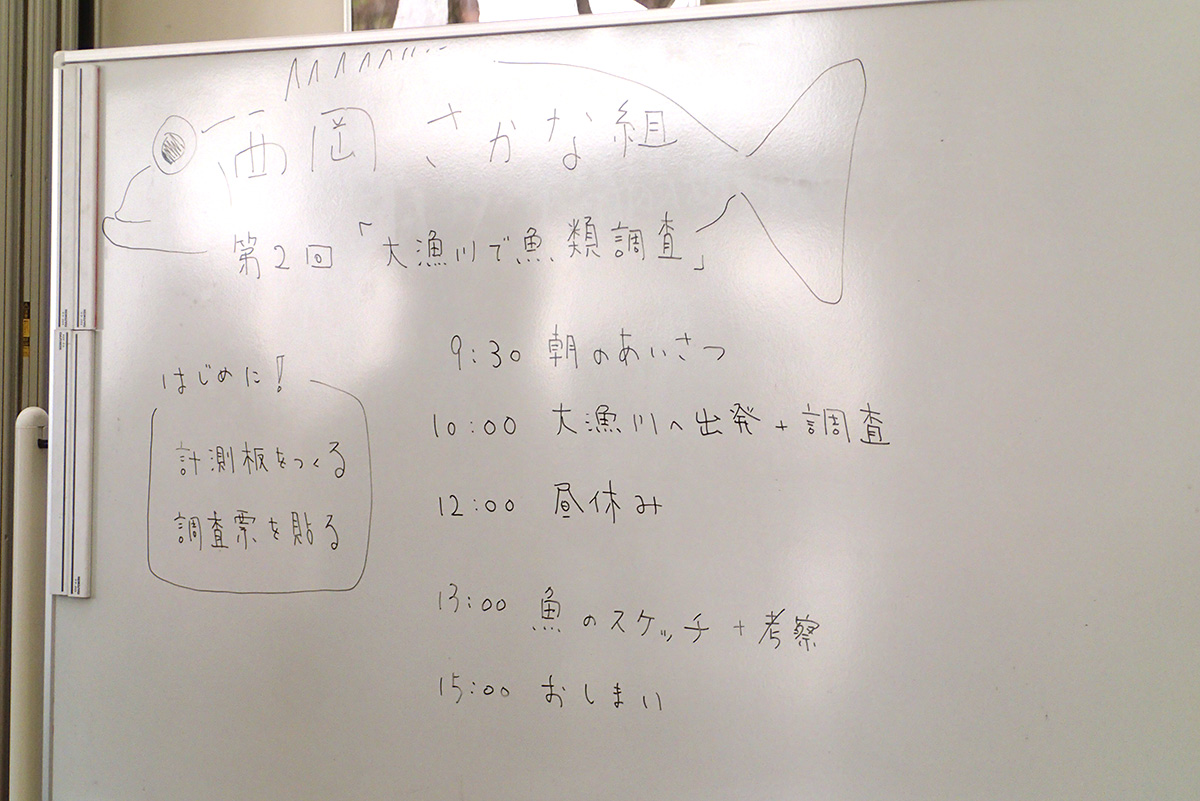 西岡さかな組
第2回「大漁川で魚類調査」
はじめに!
計測板をつくる
調査票を貼る
9:30 朝のあいさつ
10:00 大漁川へ出発+調査
12:00 昼休み
13:00 魚のスケッチ+考察
15:00 おしまい